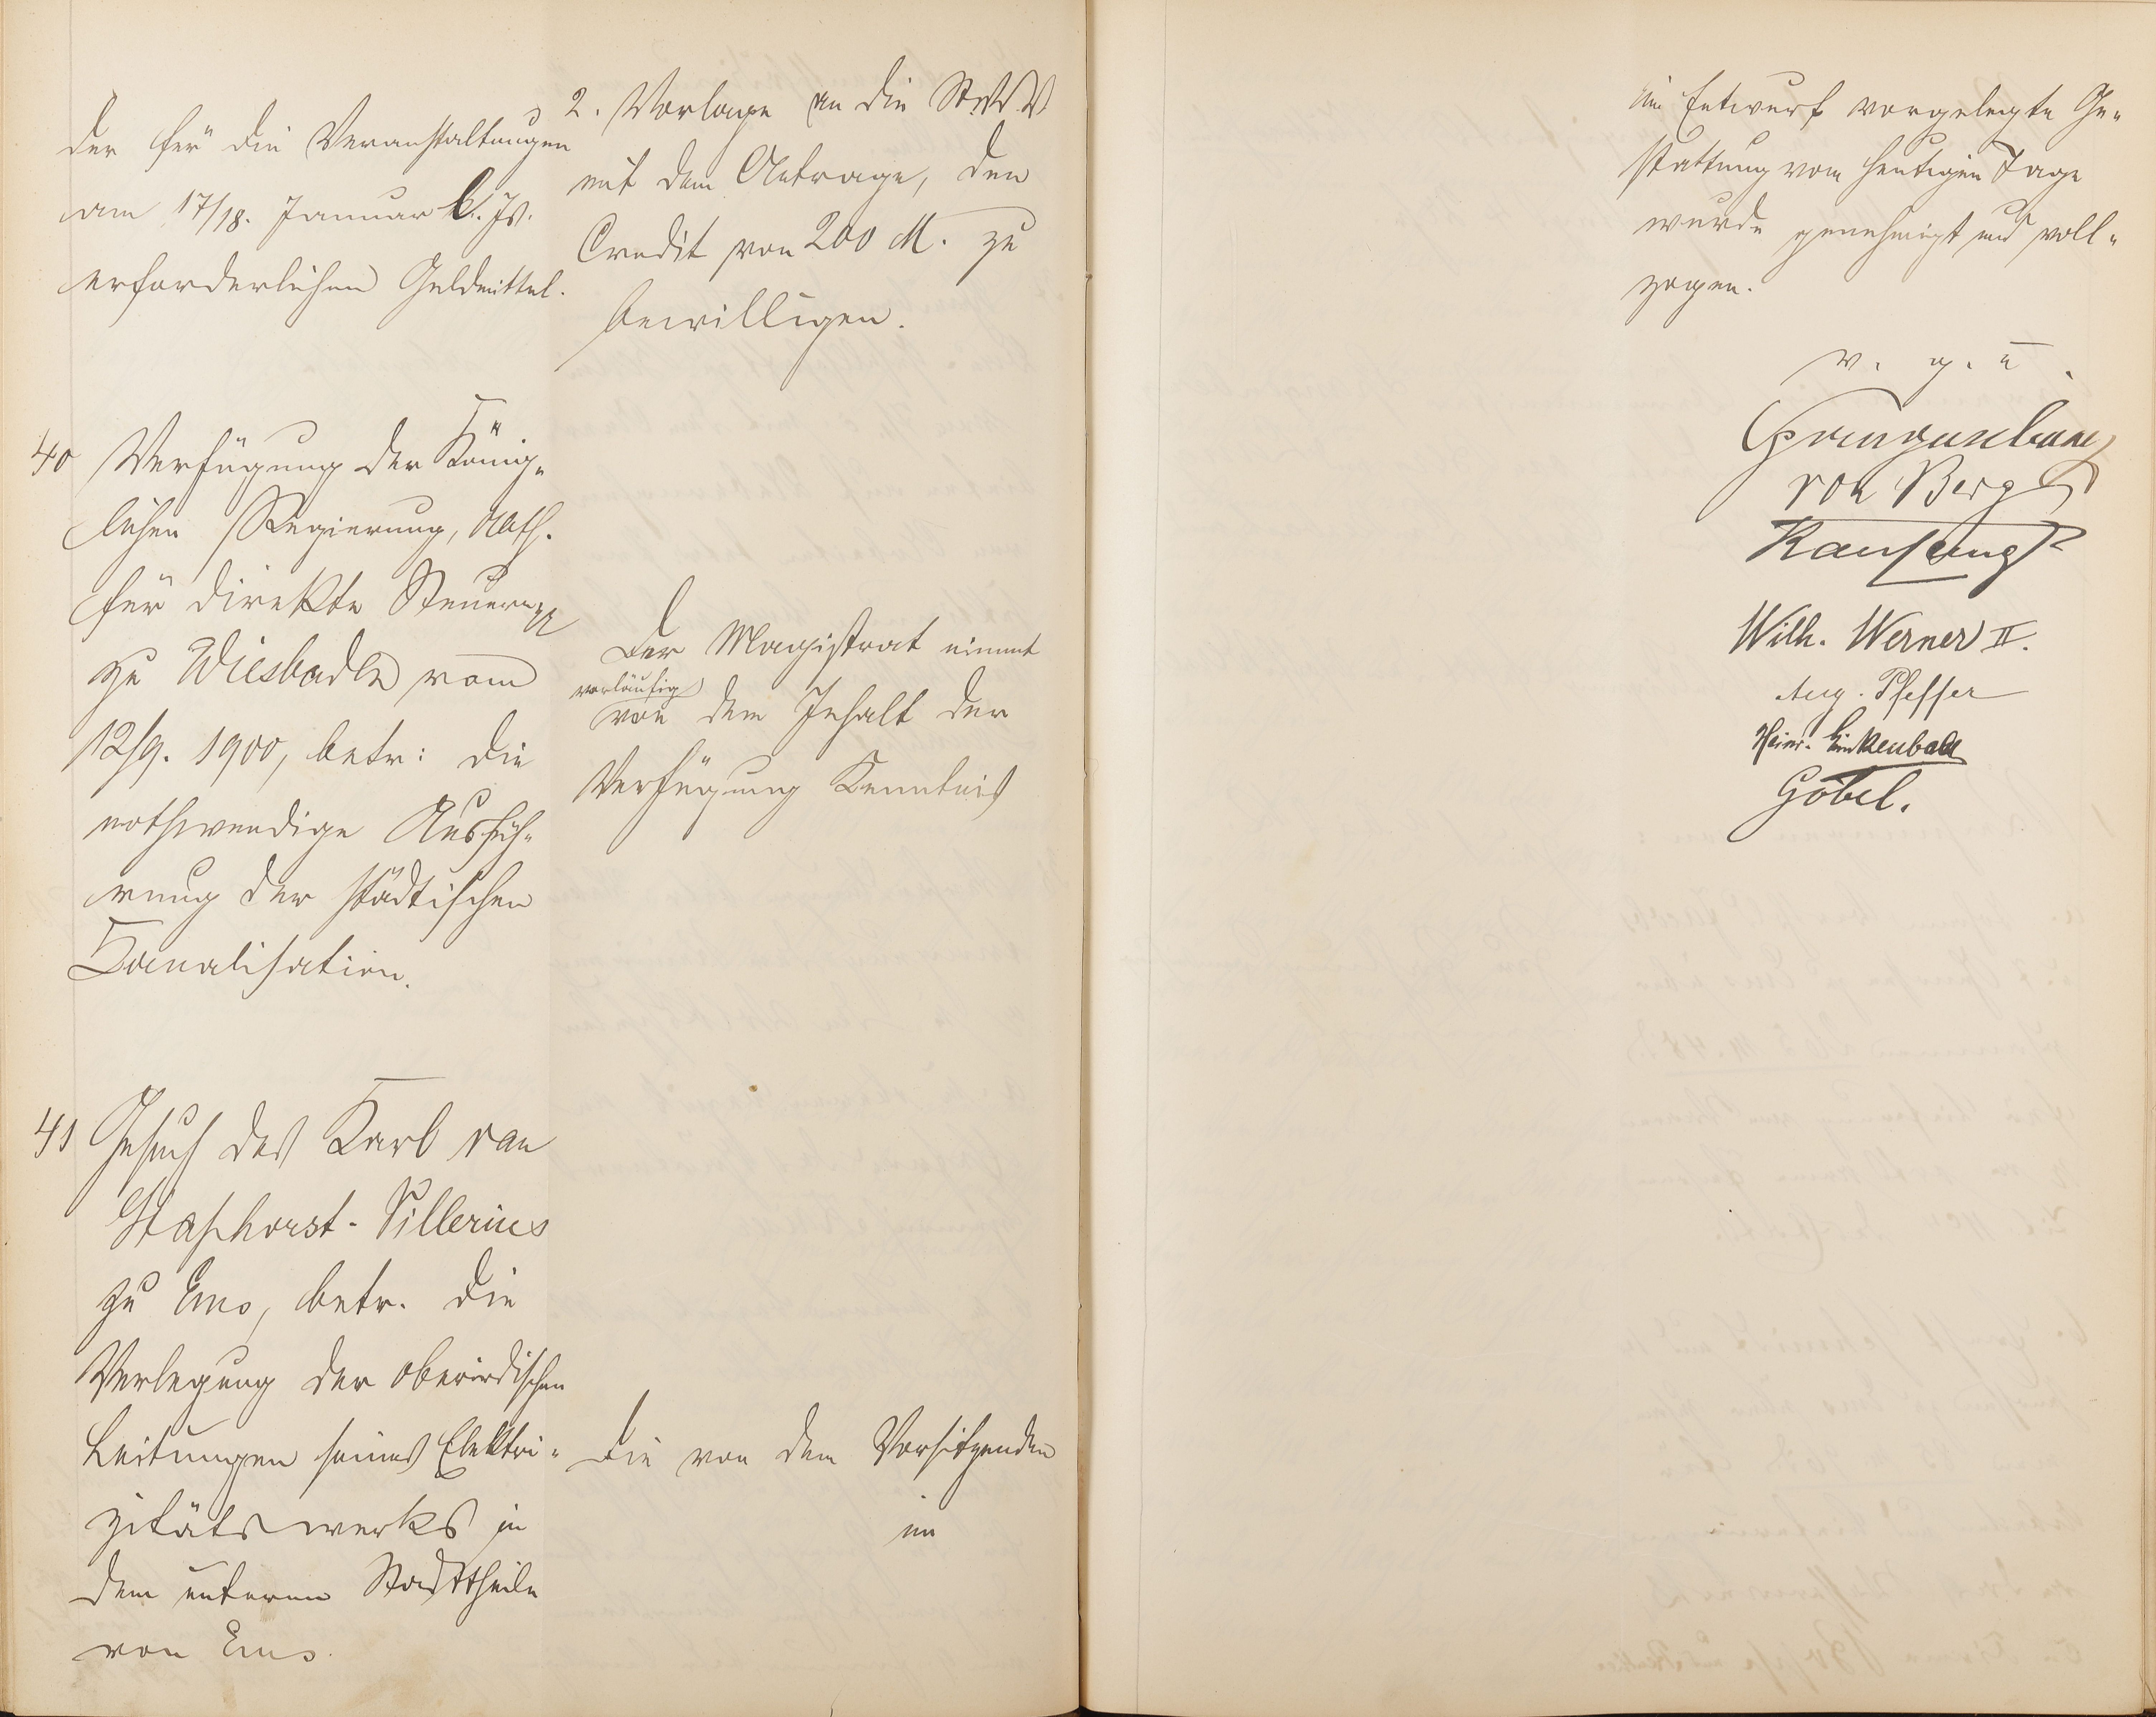 der für die Veranstaltungen
am 17/18. Januar l. Js.
erforderlichen Geldmittel.
2. Vorlage an die St.V.V.
mit dem Antrage, den
Credit von 200 M. zu
bewilligen.
40 Verfügung der König-
lichen Regierung, Abth.
für direkte Steuern pp
zu Wiesbaden vom
12/9. 1900, betr: die
nothwendige Ausfüh-
rung der städtischen
Kanalisation.
Der Magistrat nimmt
vorläufig
von dem Inhalt der
Verfügung Kenntnis
41 Gesuch des Karl van
Staphorst-Pillerius
zu Ems, betr. die
Verlegung der oberirdischen
Leitungen seines Elektri-
zitätswerks in
dem unteren Stadttheile
von Ems.
Die von dem Vorsitzenden
im
im Entwurf vorgelegte Ge-
stattung vom heutigen Tage
wurde genehmigt und voll-
zogen.
v. g. u.
von Berg
Wilh. Werner II.
Aug. Pfeffer
Heinr. Linkenbach
Göbel.